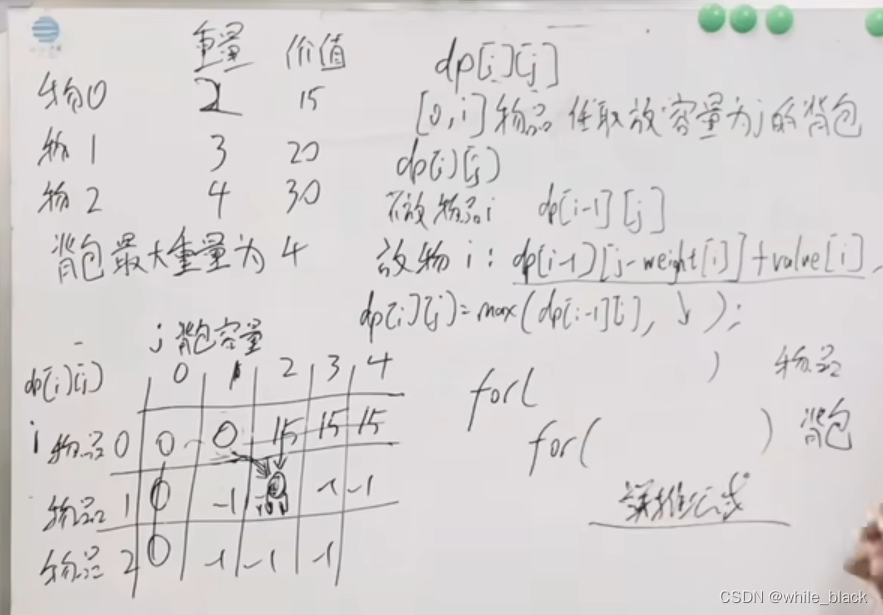 重量 价值
物品0 2 15
物1 3 20
物2 4 30
背包最大重量为4
dp[i][j]
[0,i]物品 任取放容量为j的背包
dp[i][j]
不放物品i dp[i-1][j]
放物i：dp[i-1][j-weight[i]]+value[i]
dp[i][j]=max(dp[i-1][j], ↓);
j 背包容量
dp[i][j] 0 1 2 3 4
i 物品0 0 0 15 15 15
物品1 0 -1 -1 -1
物品2 0 -1 -1 -1
for( ) 物品
for( ) 背包
递推公式
CSDN @while_black